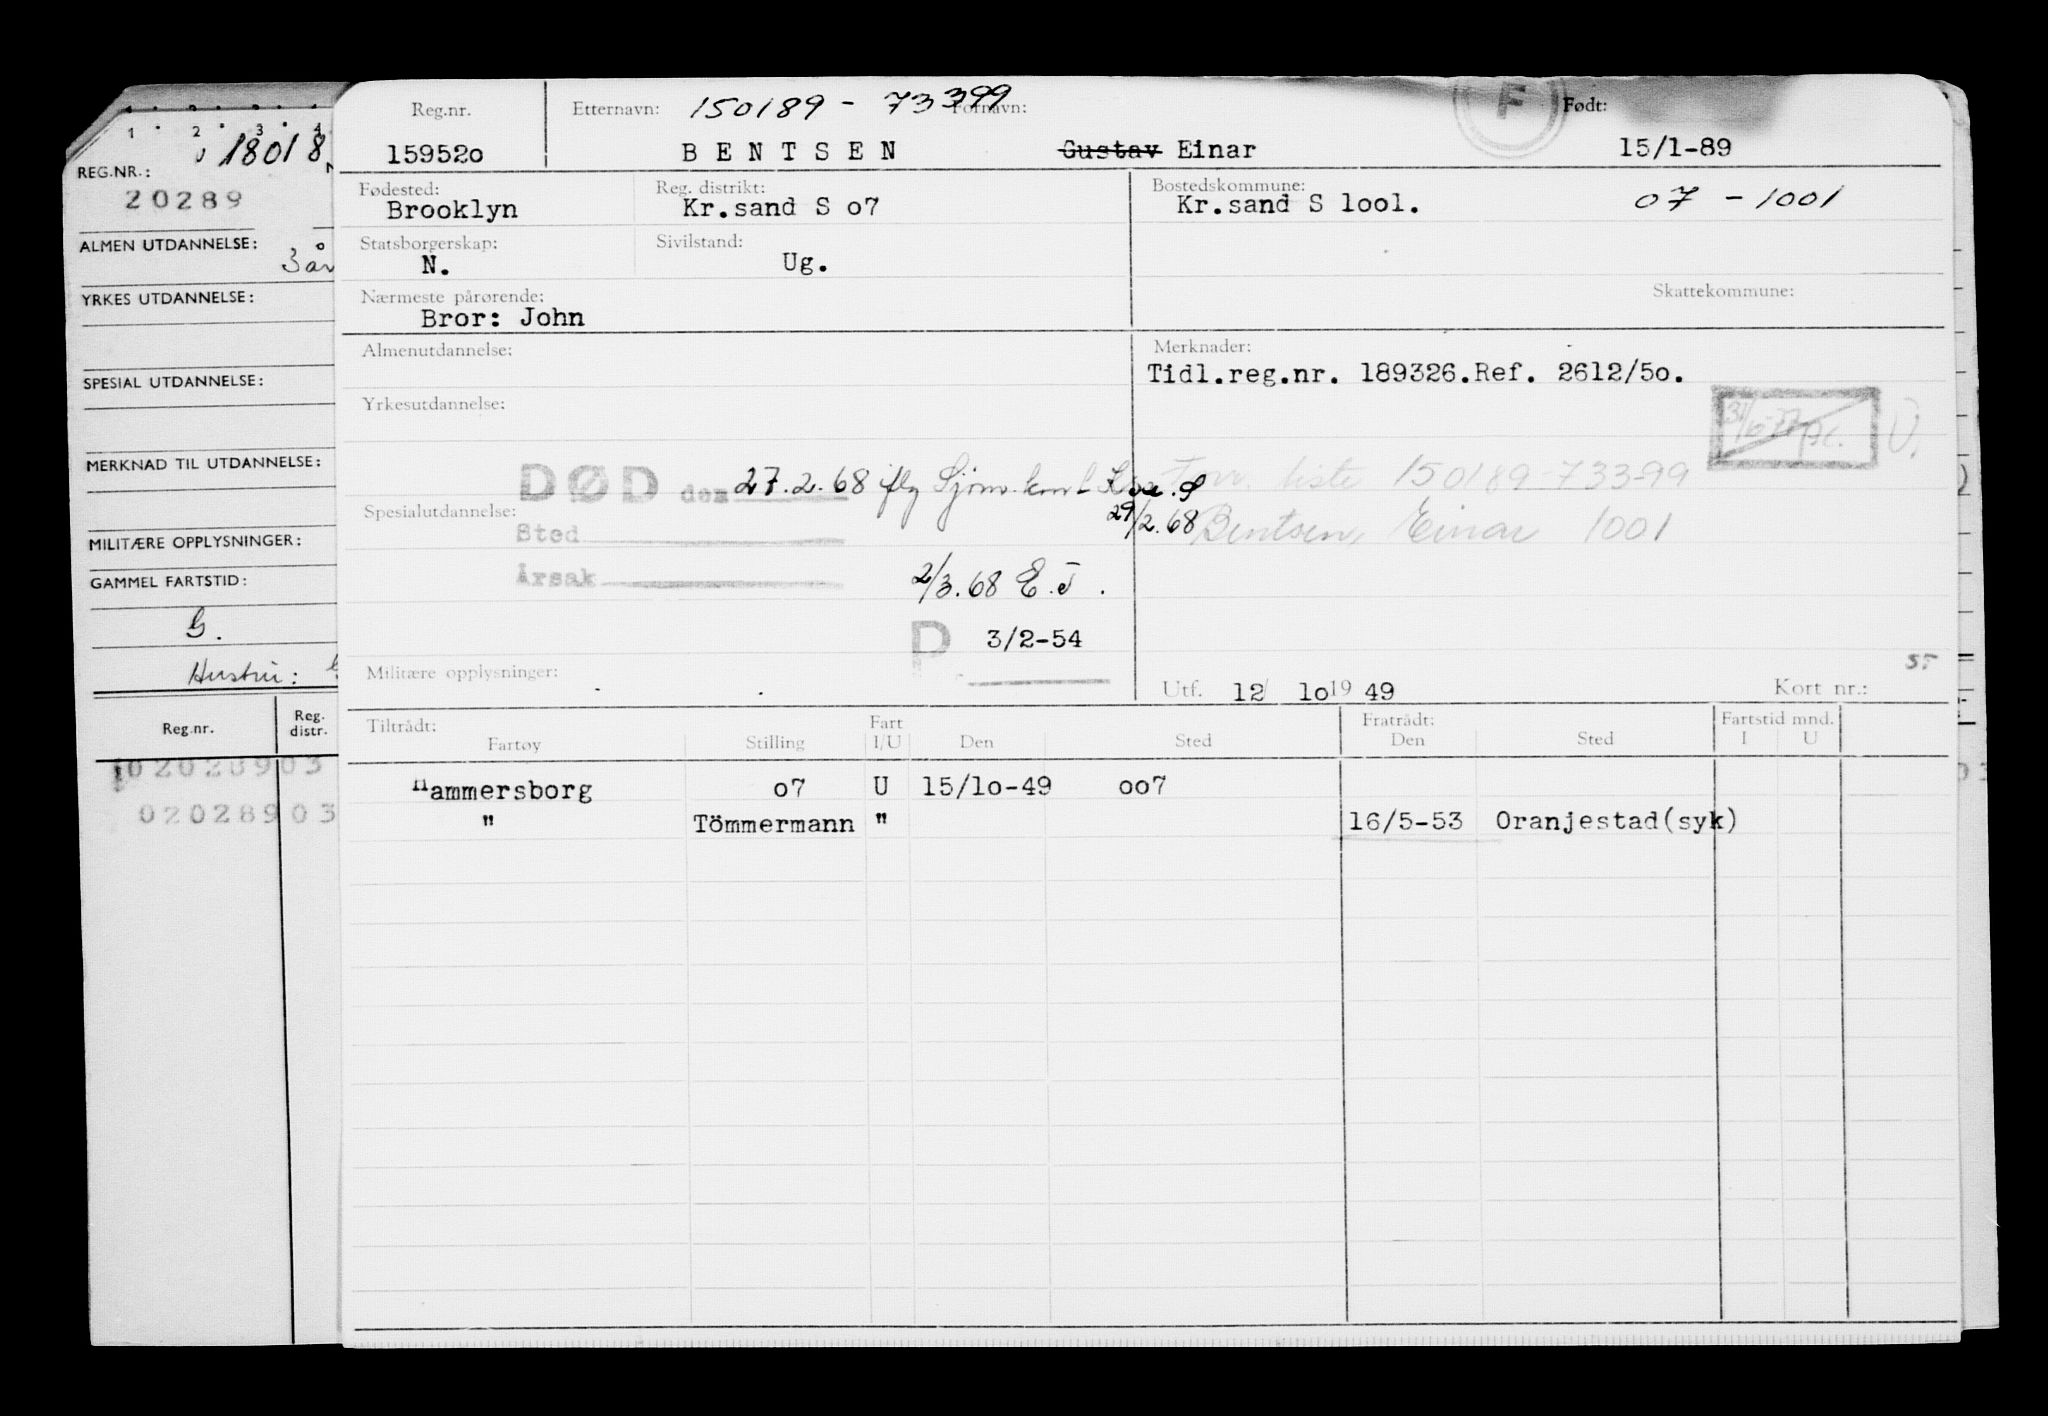 1 2 3 4
18018
REG.NR.:
20289
ALMEN UTDANNELSE:
3 år
YRKES UTDANNELSE:
SPESIAL UTDANNELSE:
MERKNAD TIL UTDANNELSE:
MILITÆRE OPPLYSNINGER:
GAMMEL FARTSTID:
G.
Hustru:
Reg.nr. Reg. distr.
02028903
02028903
Reg.nr. Etternavn: 150189 - 73399 Fornavn: F Født:
159520 BENTSEN Gustav Einar 15/1-89
Fødested: Reg. distrikt: Bostedskommune:
Brooklyn Kr.sand S o7 Kr.sand S lool. 07 - 1001
Statsborgerskap: Sivilstand:
N. Ug.
Nærmeste pårørende: Skattekommune:
Bror: John
Almenutdannelse: Merknader:
Tidl.reg.nr. 189326.Ref. 2612/5o.
Yrkesutdannelse:
DØD den 27.2.68 iflg Sjøm.kont Kr.S liste 150189-73399
Spesialutdannelse: 29/2.68 Bentsen, Einar 1001
Sted
Årsak 2/3.68 E.J.
P 3/2-54
Militære opplysninger:
Utf. 12 lo 19 49 Kort nr.:
Tiltrådt: Fart Fratrådt: Fartstid mnd.
Fartøy Stilling I/U Den Sted Den Sted I U
Hammersborg o7 U 15/lo-49 oo7
" Tömmermann " 16/5-53 Oranjestad(syk)